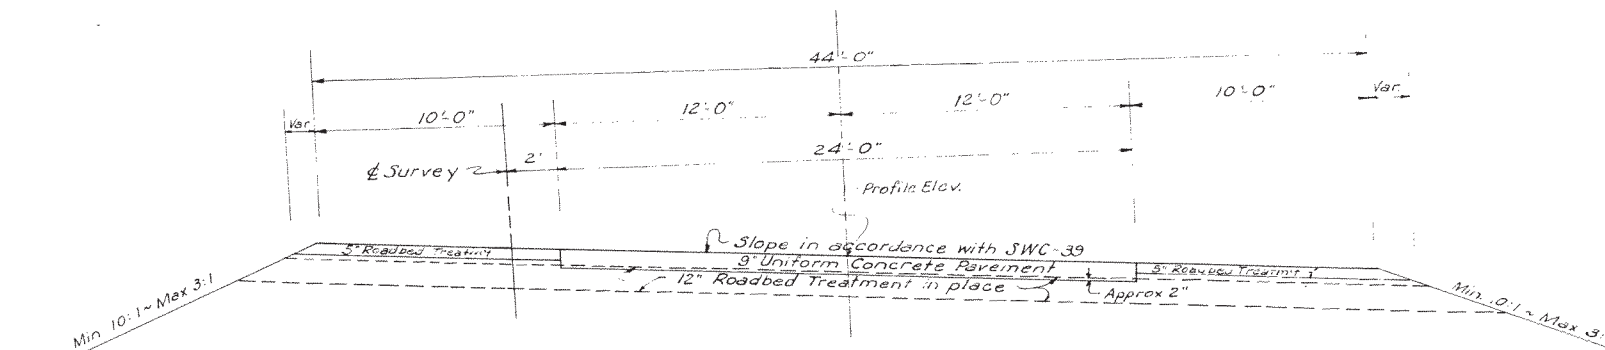 44'-0"
Var.
10'-0"
12'-0"
12'-0"
10'-0"
Var.
℄ Survey
2'
24'-0"
Profile Elev.
Slope in accordance with SWC-39
5" Roadbed Treatm't
9" Uniform Concrete Pavement
5" Roadbed Treatm't
12" Roadbed Treatment in place
Approx 2"
Min. 10:1 ~ Max 3:1
Min. 10:1 ~ Max 3: